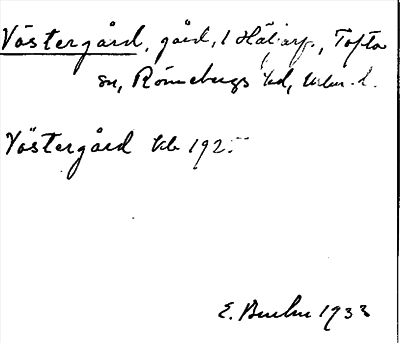 Västergård, gård, 1 Häljarp, Tofta
sn, Rönnebergs hd, Mlm. l.
Västergård kb 192
E. 1933